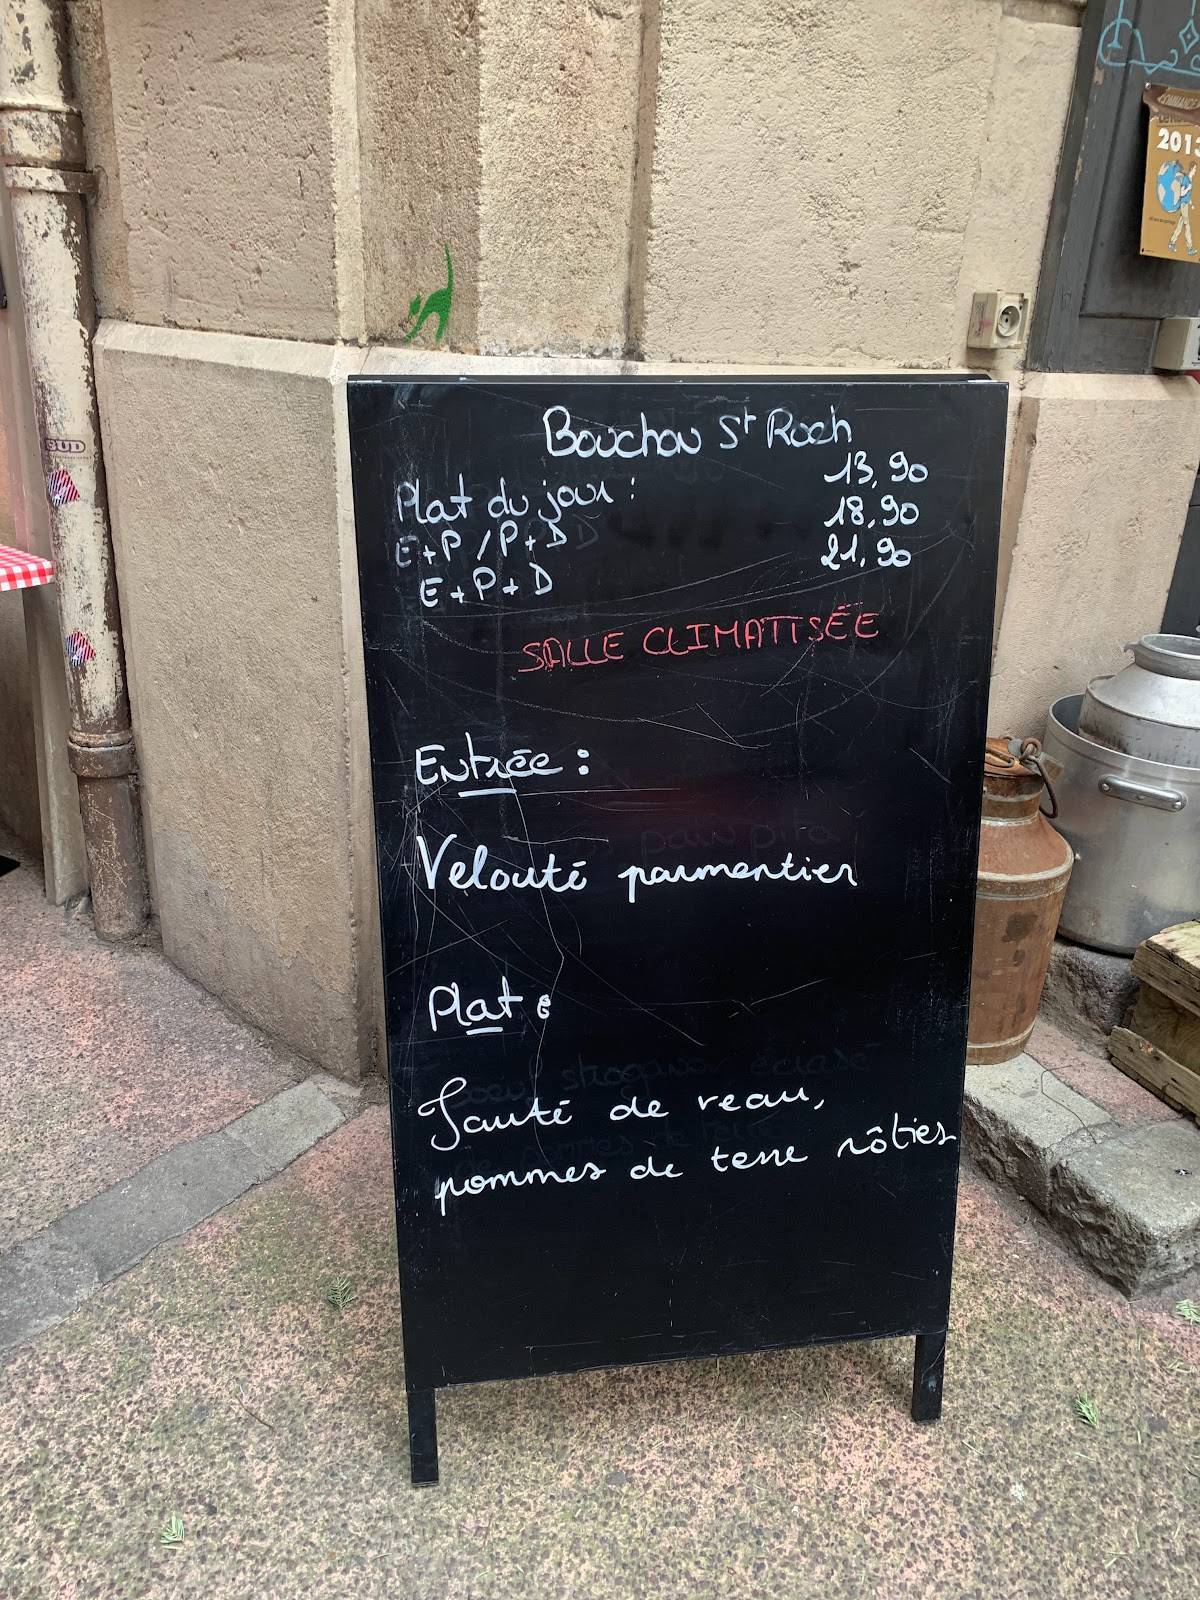 Bouchon St Roch
Plat du jour : 13,90
E+P / P+D 18,90
E+P+D 21,90
SALLE CLIMATISÉE
Entrée :
Velouté parmentier
Plat :
Sauté de veau,
pommes de terre rôties
2013
SUD